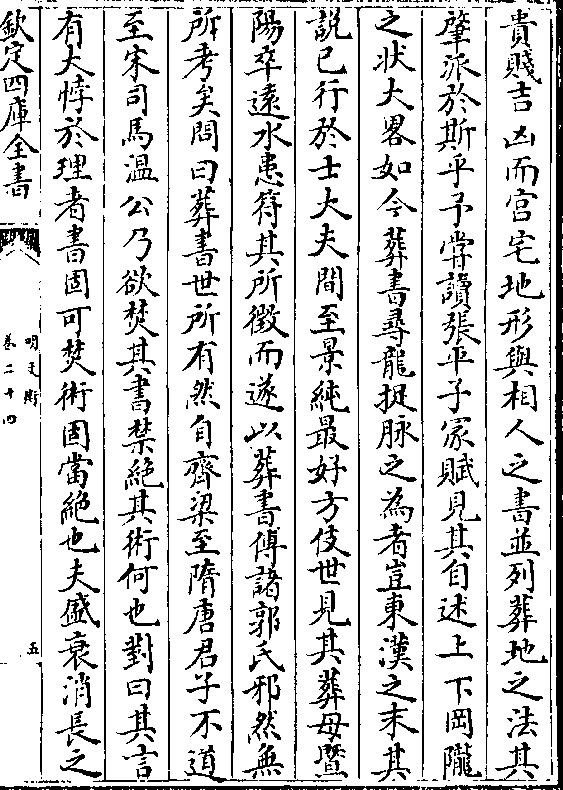 貴賤吉凶而宮宅地形與相人之書並列葬地之法其
肇派於斯乎予嘗讀張平子冢賦見其自述上下岡隴
之狀大畧如今葬書尋龍捉脉之為者豈東漢之末其
說已行於士大夫間至景純最好方伎世見其葬母暨
陽卒遠水患符其所徵而遂以葬書傅諸郭氏邪然無
所考矣問曰葬書世所有然自齊梁至隋唐君子不道
至宋司馬溫公乃欲焚其書禁絕其術何也對曰其言
有大悖於理者書固可焚術固當絕也夫盛衰消長之
欽定四庫全書
明文衡
卷二十四
五